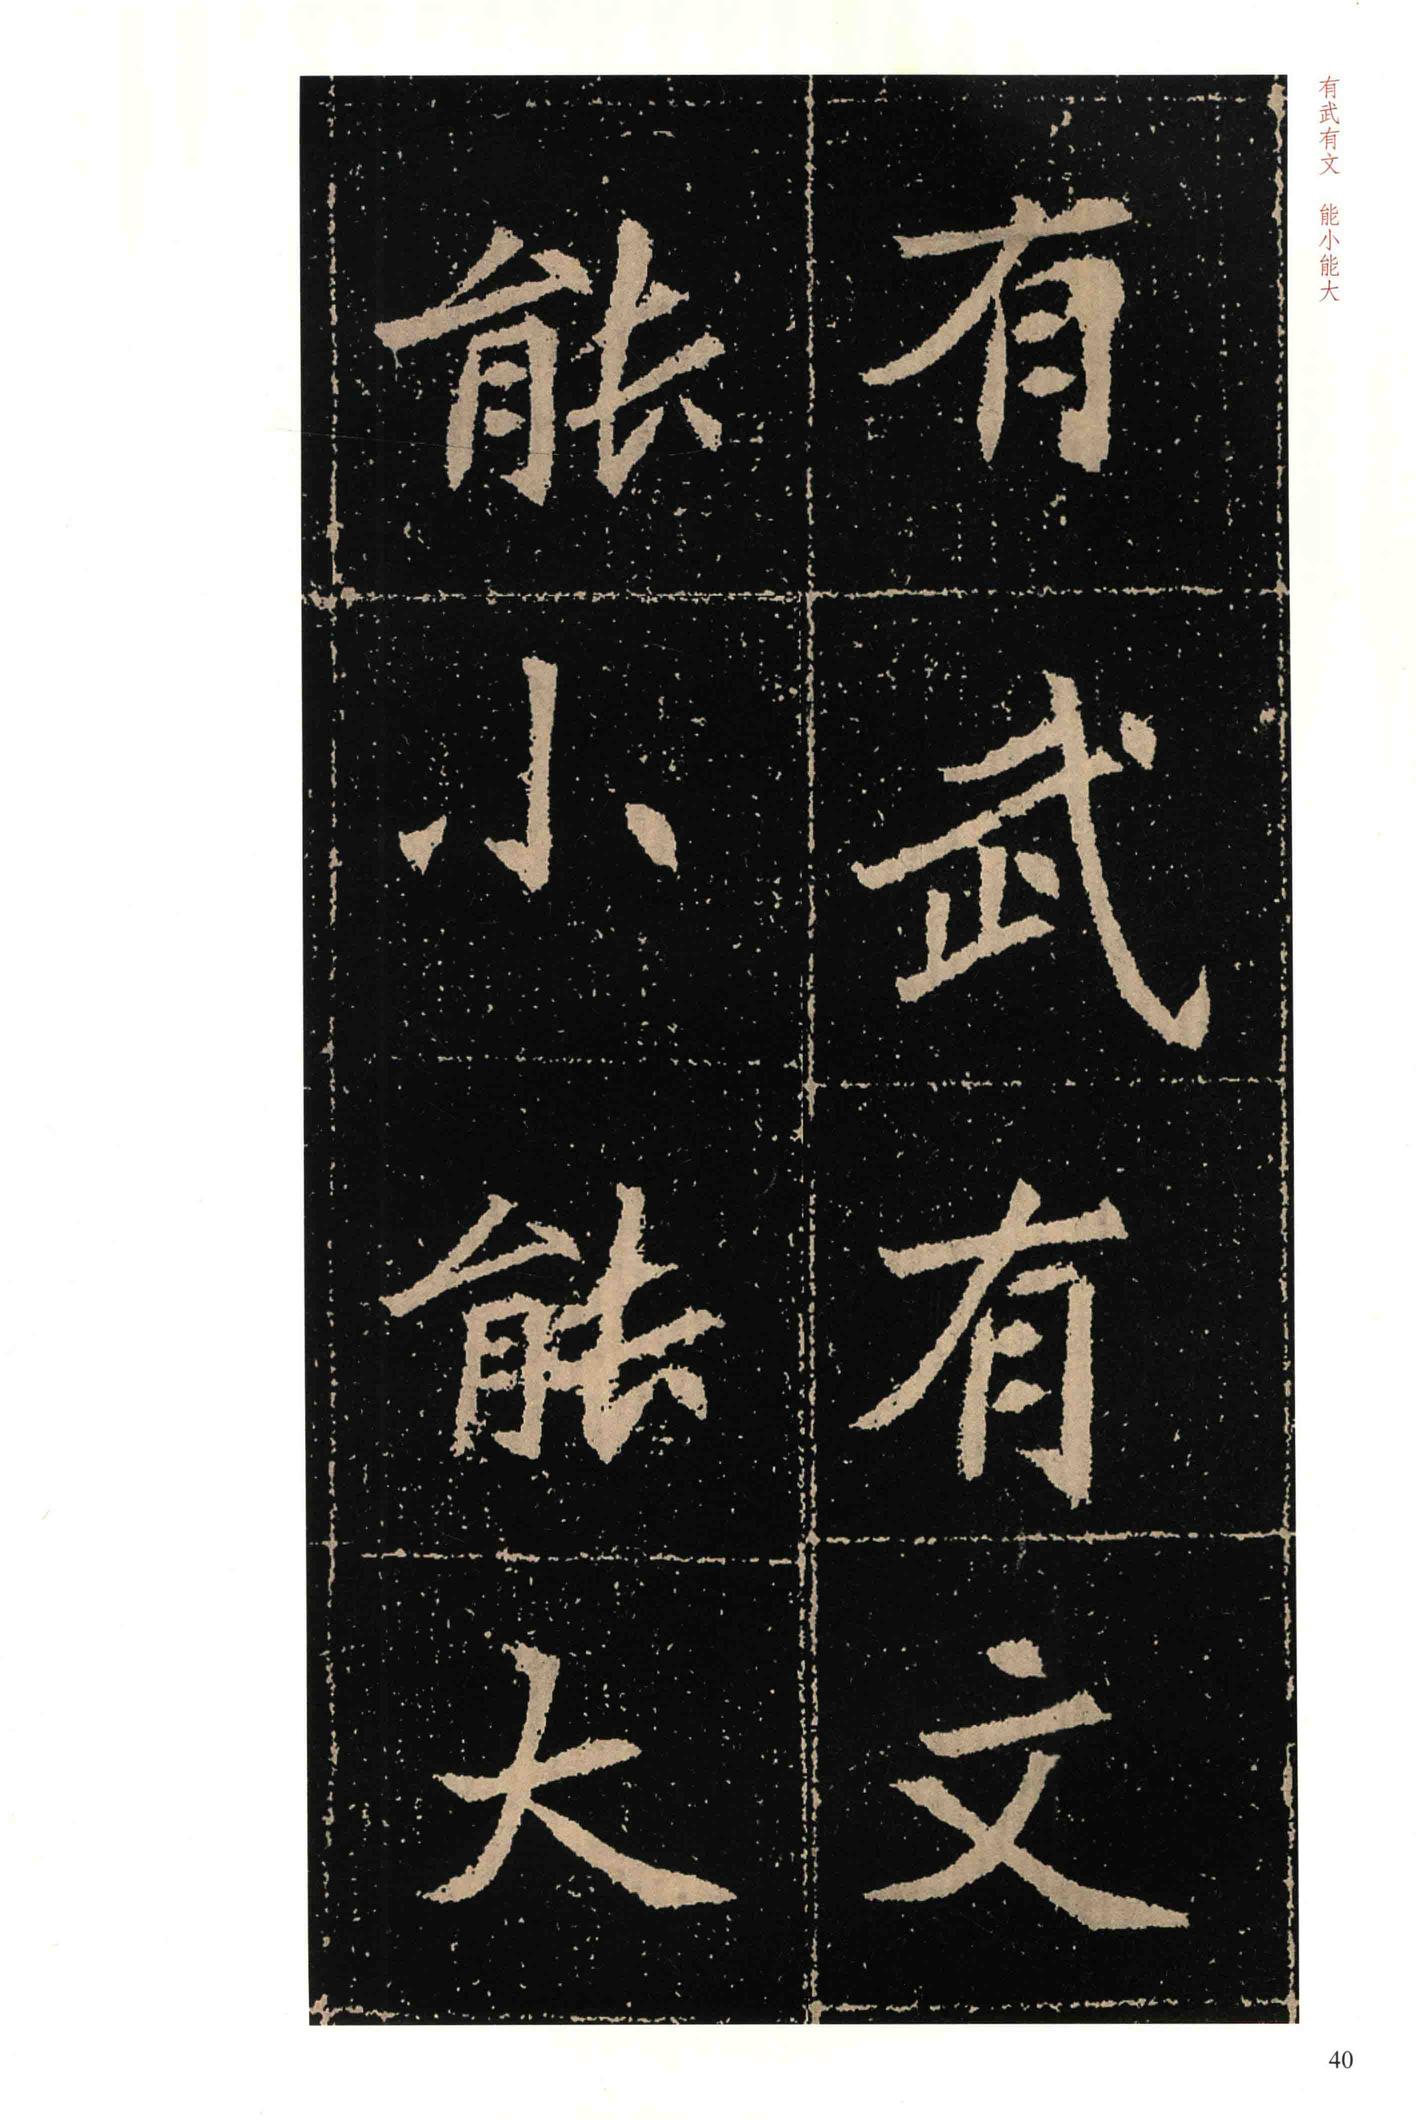 有武有文 能小能大
有武有文
能小能大
40